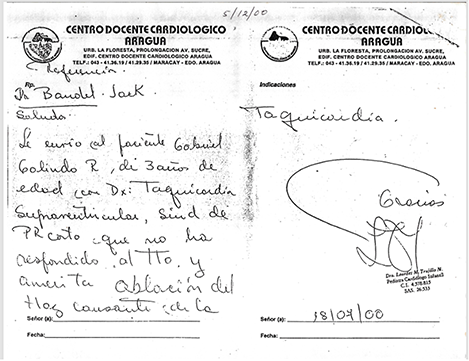 5/12/00
CENTRO DOCENTE CARDIOLOGICO
ARAGUA
URB. LA FLORESTA, PROLONGACION AV. SUCRE,
EDIF. CENTRO DOCENTE CARDIOLOGICO ARAGUA
TELF.: 043 - 41.36.19 / 41.29.35 / MARACAY - EDO. ARAGUA
Referencia
Rp.
Dr. Bandel. Jack
Saludo:
Le envio al paciente Gabriel
Galindo R, de 3 años de
edad con Dx: Taquicardia
Supraventricular, sind de
PR corto que no ha
respondido al tto. y
amerita Ablación del
Haz causante de la
Señor (a):
Fecha:
CENTRO DOCENTE CARDIOLOGICO
ARAGUA
URB. LA FLORESTA, PROLONGACION AV. SUCRE,
EDIF. CENTRO DOCENTE CARDIOLOGICO ARAGUA
TELF.: 043 - 41.36.19 / 41.29.35 / MARACAY - EDO. ARAGUA
Indicaciones
Taquicardia.
Gracias
Dra. Lourdes M. Trujillo M.
Pediatra Cardiólogo Infantil
C.I. 4.570.815
SAS. 26.533
Señor (a): 18/07/00
Fecha: